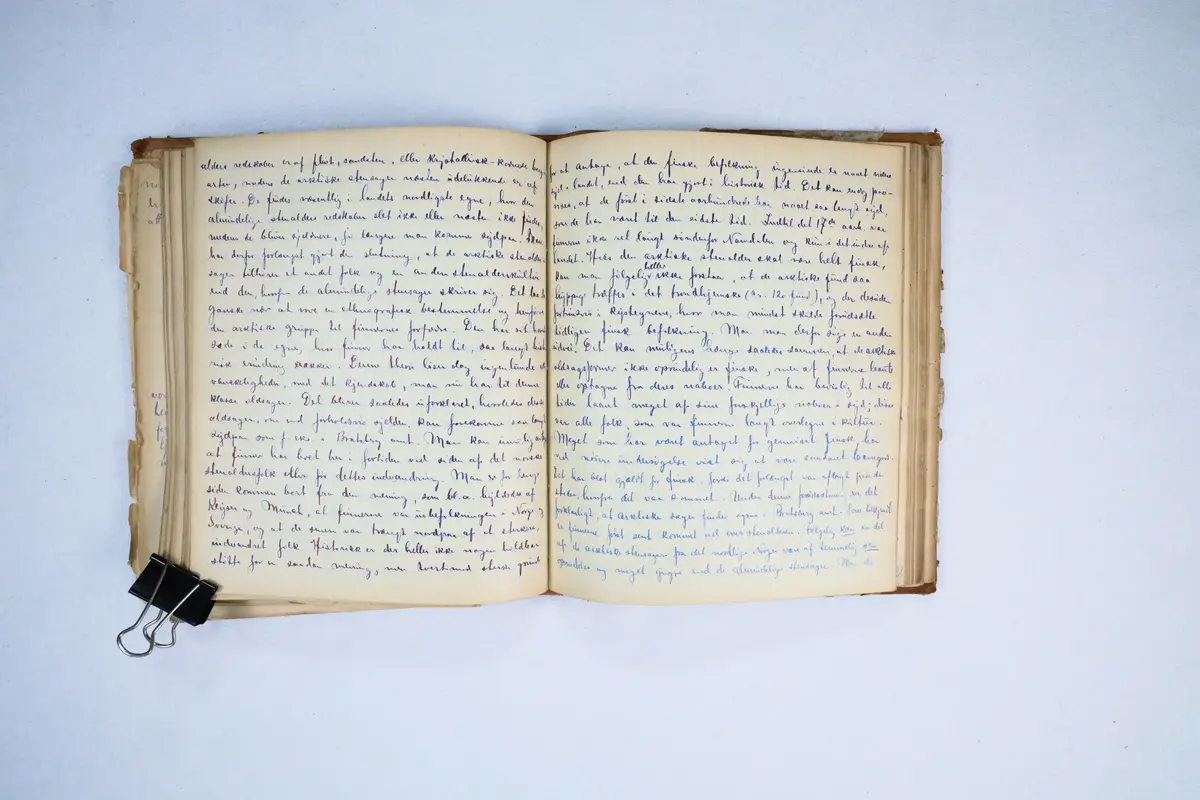 ældere redskaber er af flint, sandsten, eller krystallinsk-kornede berg
arter, medens de arktiske stensager næsten udelukkende er af
skifer. De findes væsentlig i landets nordligste egne, hvor den
almindelige stenalders redskaber slet ikke eller næsten ikke findes,
medens de bliver sjeldnere, jo længer man kommer sydpaa. Man
har derfor forlængst gjort den slutning, at de arktiske stenalder-
sager tilhører et andet folk og en anden stenalderskultur
end den, hvorfra de almindelige stensager skriver sig. Det
ganske nær at vove en ethnografisk bestemmelse og henføre
den arktiske gruppe til finnernes forfædre. Den har sit
sæde i de egne, hvor finner har holdt til, saa langt
erindring rækker. Denne theori løser dog ingenlunde
vanskeligheden, med det kjendskab, man nu har til denne
klasse oldsager. Det bliver saaledes uforklaret, hvorledes disse
oldsager, om end forholdsvis sjelden kan forekomme saa langt
sydpaa som f. eks. i Bratsberg amt. Man kan umulig antage
at finner har boet her i fortiden ved siden af det norske
stenaldersfolk eller før dettes indvandring. Man er for længe
siden kommen bort fra den mening, som bl. a. hyldedes af
Keyser og Munch, at finnerne var urbefolkningen i Norge og
Sverige, og at de senere var trængt nordpaa af et sterkere,
indvandret folk. Historisk er der heller ikke nogen holdbar
støtte for en saadan mening, men tvertimod sterke grunde
for at antage, at den finske befolkning ingensinde er naaet videre
syd i landet, end den har gjort i historisk tid. Det kan endog
vises, at de først i sidste aarhundrede har naaet saa langt syd,
som de har været til den sidste tid. Indtil det 17de aarh. var
finnerne ikke vel langt søndenfor Namdalen og kun i det indre af
landet. Hvis den arktiske stenalder skal være helt finsk,
kan man følgelig heller ikke forstaa, at de arktiske fund saa
hyppig træffes i det trondhjemske (ca. 120 fund), og der desuden
fortrinsvis i kystegnene, hvor man mindst skulde forudsætte
tidligere finsk befolkning. Man maa derfor søge en anden
udvei. Det kan muligens hænge saaledes sammen, at de arktiske
oldsagsformer ikke oprindelig er finske, men af finnerne laante
eller optagne fra deres naboer. Finnerne har bevislig til alle
tider laant meget af sine forskjellige naboer i syd; disse
var alle folk, som var finnerne langt overlegne i kultur.
Meget som har været antaget for genuint finsk, har
ved nøiere undersøgelse vist sig at være
Det har blot gjældt for finsk, fordi det forlængst var aflagt paa de
steder, hvorfra det var kommet. Under denne forudsætning er det
forklarligt, at arktiske sager findes i Bratsberg amt.
er finnerne først sent kommet ud over stenalderen. Følgelig kan en del
af de arktiske stensager fra det nordlige Norge være af
oprindelse og meget yngre end de almindelige stensager.